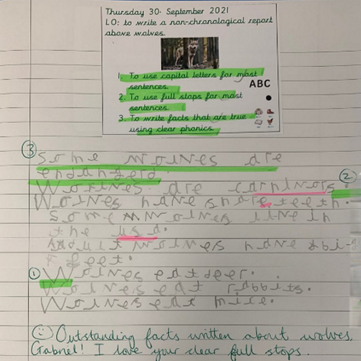 Thursday 30th September 2021
LO: to write a non-chronological report
above wolves.
1. To use capital letters for most
sentences.
2. To use full stops for most
sentences.
3. To write facts that are true
using clear phonics.
ABC
③
Some wolves are
endangerd
Wolves are carnivors. ②
Wolves have sharp teeth.
Some wolves live in
the usa.
Adult wolves have
feet.
① Wolves eat deer.
Wolves eat rabbits.
Wolves eat mice.
Outstanding facts written about wolves
Gabriel! I love your clear full stops.